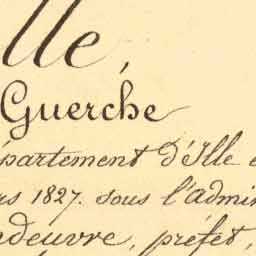 lle,
Guerche
épartement d'Ille e
rs 1827. sous l'admin
ndeuvre, préfet,